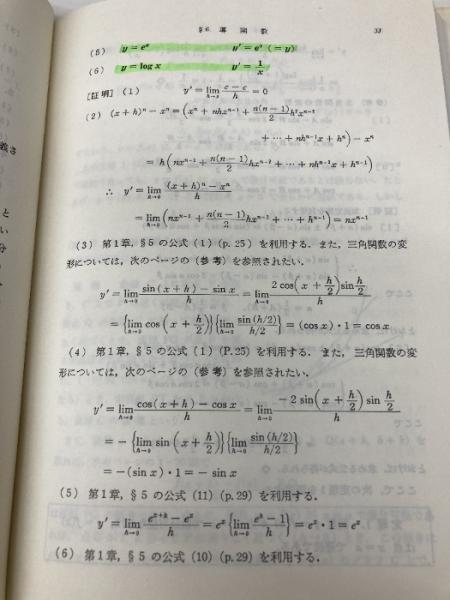 §6. 導関数 33
(5) y = eˣ y′ = eˣ (= y)
(6) y = log x y′ = 1/x
[証明] (1) y′ = lim_{h→0} (c − c)/h = 0
(2) (x + h)ⁿ − xⁿ = (xⁿ + nhxⁿ⁻¹ + n(n − 1)/2 h²xⁿ⁻²
+ ⋯ + nhⁿ⁻¹x + hⁿ) − xⁿ
= h(nxⁿ⁻¹ + n(n − 1)/2 hxⁿ⁻² + ⋯ + nhⁿ⁻²x + hⁿ⁻¹)
∴ y′ = lim_{h→0} ((x + h)ⁿ − xⁿ)/h
= lim_{h→0} (nxⁿ⁻¹ + n(n − 1)/2 hxⁿ⁻² + ⋯ + hⁿ⁻¹) = nxⁿ⁻¹
(3) 第1章, §5 の公式 (1) (p.25) を利用する. また, 三角関数の変
形については, 次のページの (参考) を参照されたい.
y′ = lim_{h→0} (sin (x + h) − sin x)/h = lim_{h→0} (2 cos(x + h/2) sin h/2)/h
= {lim_{h→0} cos (x + h/2)}{lim_{h→0} sin (h/2)/(h/2)} = (cos x)・1 = cos x
(4) 第1章, §5 の公式 (1) (P.25) を利用する. また, 三角関数の変
形については, 次のページの (参考) を参照されたい.
y′ = lim_{h→0} (cos(x + h) − cos x)/h = lim_{h→0} (−2 sin(x + h/2) sin h/2)/h
= − {lim_{h→0} sin (x + h/2)}{lim_{h→0} sin (h/2)/(h/2)}
= −(sin x)・1 = − sin x
(5) 第1章, §5 の公式 (11) (p.29) を利用する.
y′ = lim_{h→0} (eˣ⁺ʰ − eˣ)/h = eˣ{lim_{h→0} (eʰ − 1)/h} = eˣ・1 = eˣ
(6) 第1章, §5 の公式 (10) (p.29) を利用する.